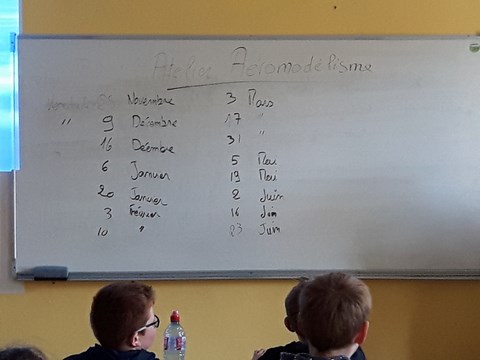 Atelier Aeromodélisme
Vendredi 25 Novembre
" 9 Décembre
16 Décembre
6 Janvier
20 Janvier
3 Février
10 "
3 Mars
17 "
31 "
5 Mai
19 Mai
2 Juin
16 Juin
23 Juin